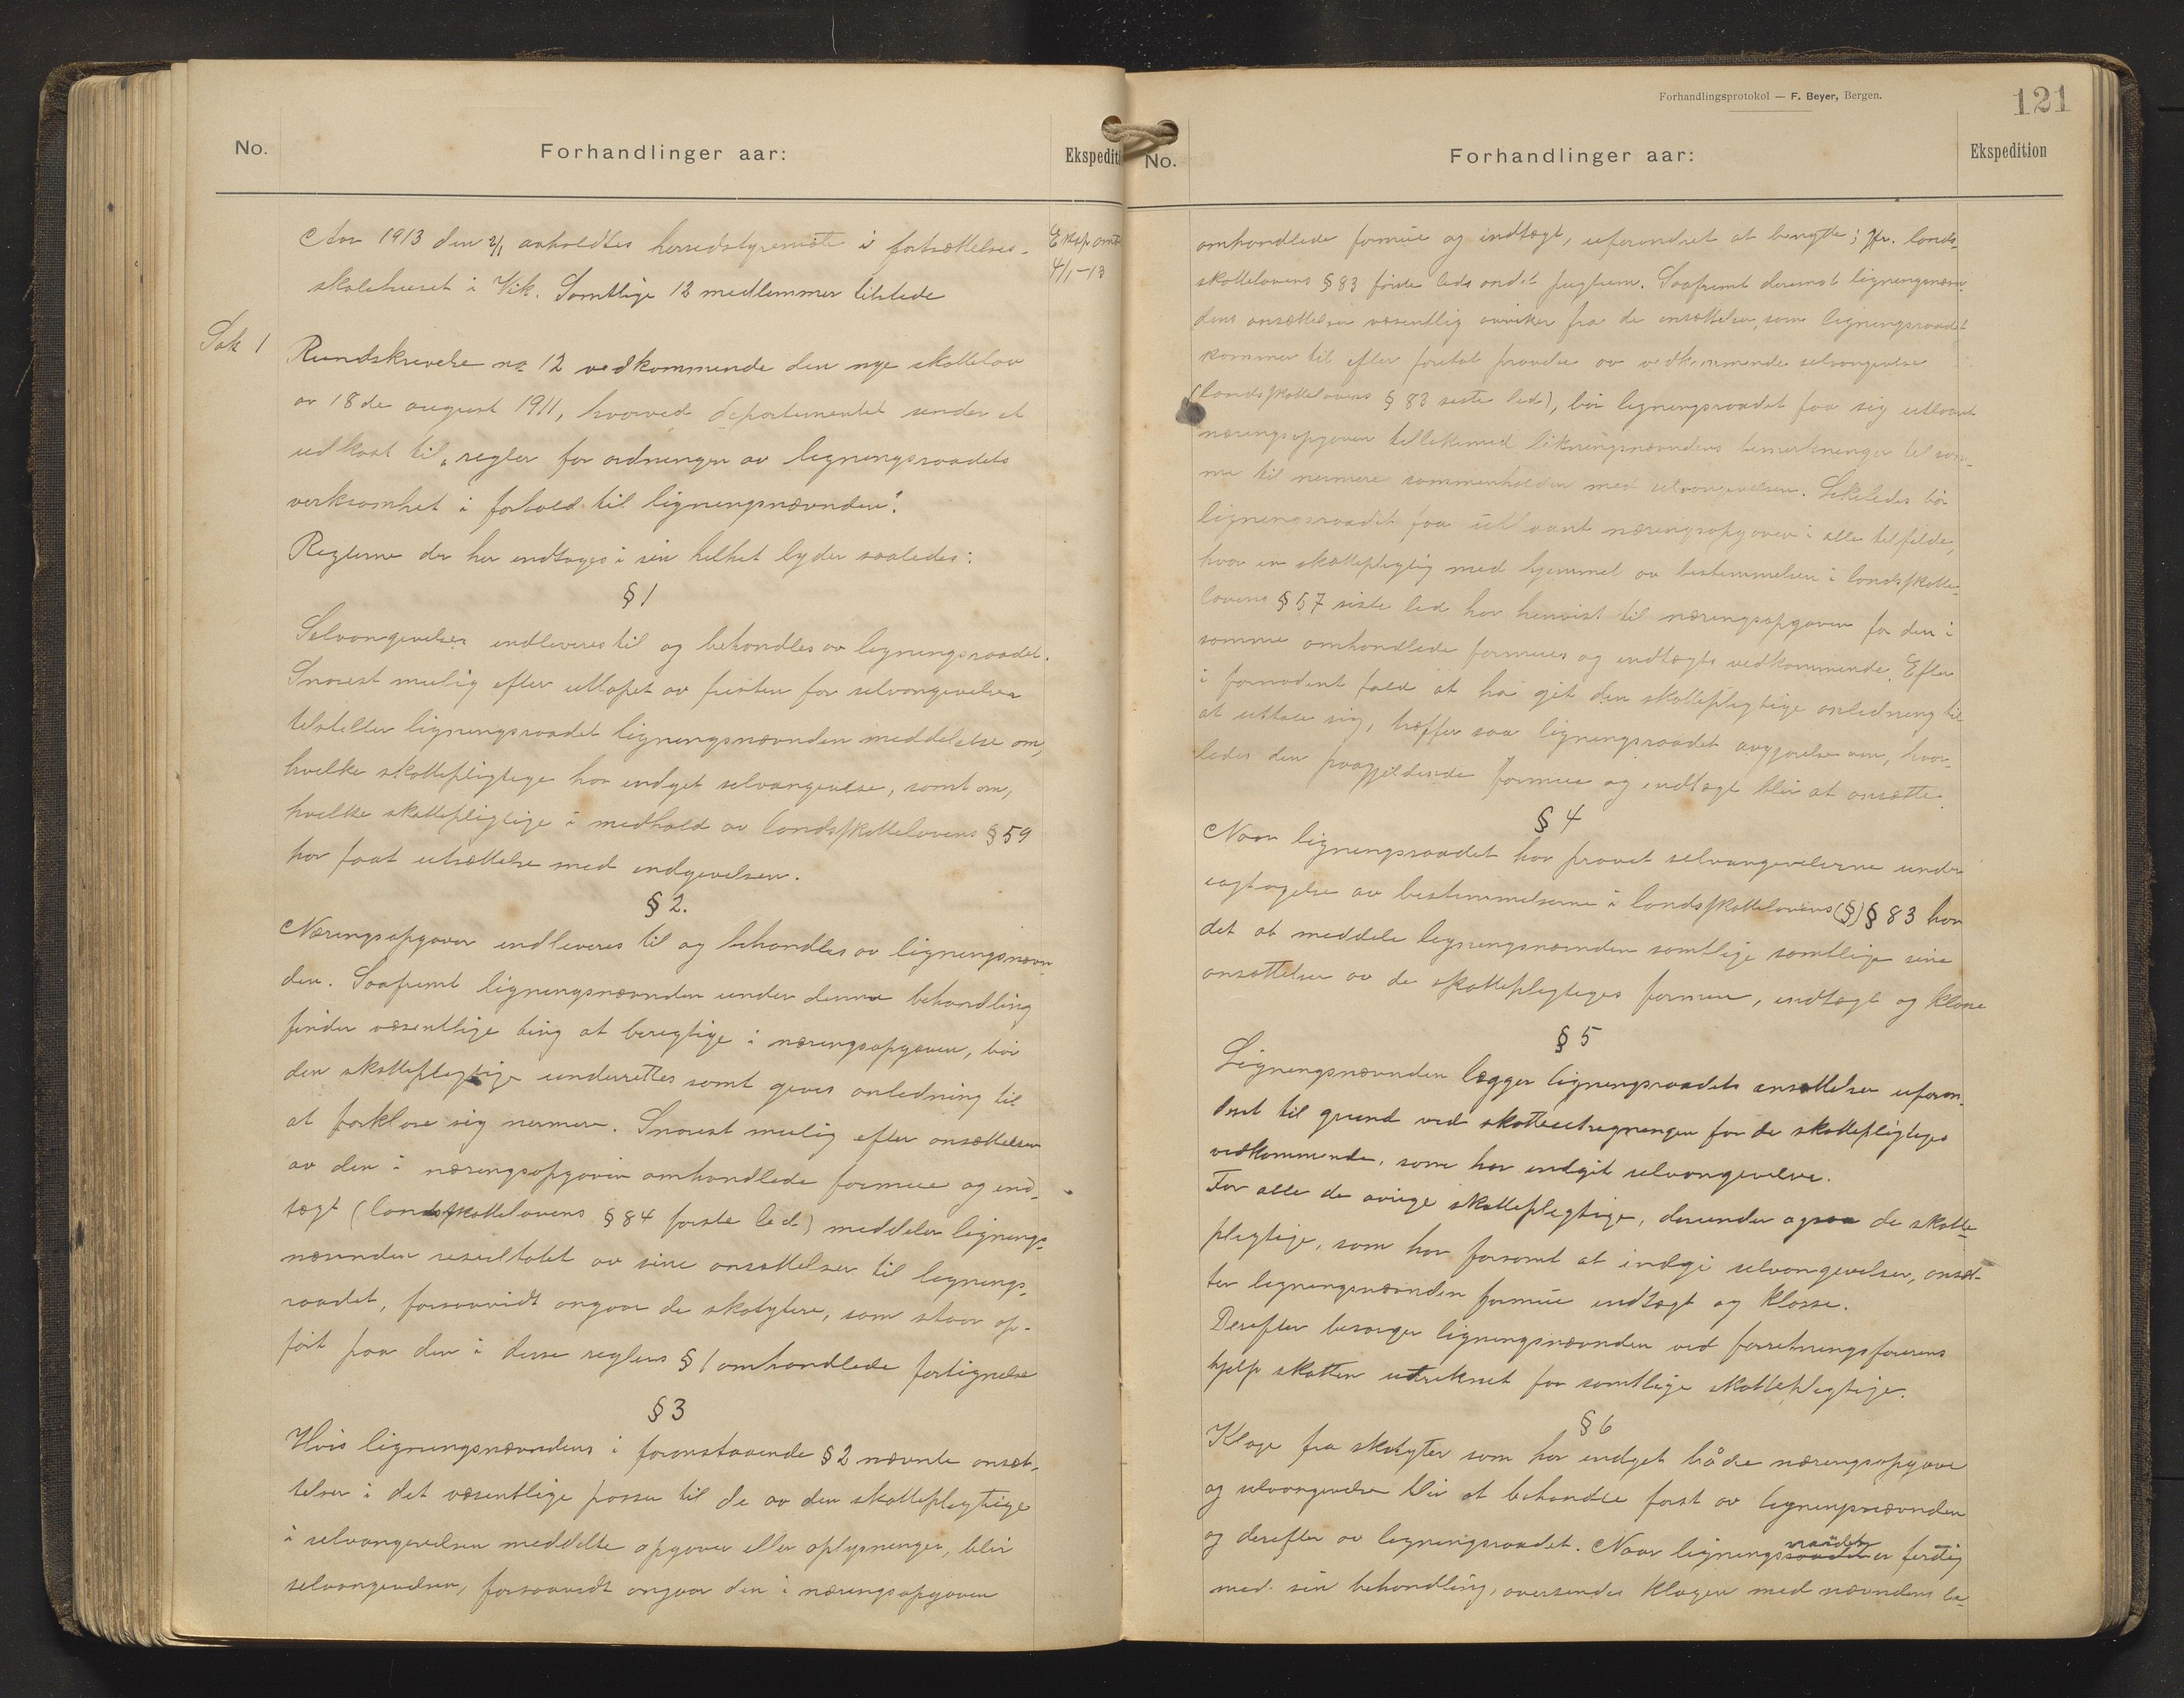 No.
Forhandlinger aar:
Ekspedit
Aar 1913 den 2/1 avholdtes herredstyremøte i fortsættelses-
skolehuset i Vik. Samtlige 12 medlemmer tilstede
Eksp. amt
4/1-13
Sak 1
Rundskrivelse no 12 vedkommende den nye skattelov
av 18de august 1911, hvorved departementet sender et
udkast til „regler for ordningen av ligningsraadets
verksomhet i forhold til ligningsnævnden".
Reglerne der her indtages i sin helhet lyder saaledes:
§ 1
Selvangivelser indleveres til og behandles av ligningsraadet.
Snarest mulig efter utløpet av fristen for selvangivelser
tilstiller ligningsraadet ligningsnævnden meddelelse om,
hvilke skattepligtige har indget selvangivelse, samt om,
hvilke skattepligtige i medhold av landsskattelovens § 59
har faat utsættelse med indgivelsen.
§ 2.
Næringsopgaver indleveres til og behandles av ligningsnævn-
den. Saafremt ligningsnævnden under denne behandling
finder væsentlige ting at berigtige i næringsopgaven, bør
den skattepligtige underrettes samt gives anledning til
at forklare sig nermere. Snarest mulig efter ansættelsen
av den i næringsopgaven omhandlede formue og ind-
tægt (landsskattelovens § 84 første led) meddeler lignings-
nævnden resultatet av sine ansættelser til lignings-
raadet, forsaavidt angaar de skatytere, som staar op-
ført paa den i disse reglers § 1 omhandlede fortignelse
§ 3
Hvis ligningsnævndens i foranstaaende § 2 nævnte ansæt-
telser i det væsentlige passer til de av den skattepligtige
i selvangivelsen meddelte opgaver eller oplysninger, blir
selvangivelsen, forsaavidt angaar den i næringsopgaven
Forhandlingsprotokol — F. Beyer, Bergen.
121
No.
Forhandlinger aar:
Ekspedition
omhandlede formue og indtægt, uforandret at benytte; jfr. lands-
skattelovens § 83 første leds andet punktum. Saafremt derimot ligningsnævn-
dens ansættelser væsentlig avviker fra de ansættelser, som ligningsraadet
kommer til efter foretat prøvelse av vedkommende selvangivelse
(landsskattelovens § 83 siste led), bør ligningsraadet faa sig utlaant
næringsopgaven tillikemed likningsnævndens bemerkninger til sam-
me til nermere sammenholden med selvangivelsen. Likeledes bør
ligningsraadet faa utlaant næringsopgaven i alle tilfælde,
hvor en skattepligtig med hjemmel av bestemmelsen i landsskatte-
lovens § 57 siste led har henvist til næringsopgaven for den i
samme omhandlede formues og indtægts vedkommende. Efter
i fornødent fald at ha git den skattepligtige anledning til
at uttale sig, træffer saa ligningsraadet avgjørelse om, hvor-
ledes den paagjeldende formue og indtægt blir at ansætte.
§ 4
Naar ligningsraadet har prøvet selvangivelserne under
iagtagelse av bestemmelserne i landsskattelovens (§) § 83 har
det at meddele ligningsnævnden samtlige samtlige sine
ansættelser av de skattepligtiges formue, indtægt og klasse
§ 5
Ligningsnævnden lægger ligningsraadets ansættelser uforan-
dret til grund ved skatteutregningen for de skattepligtiges
vedkommende, som har indgit selvangivelse.
For alle de øvrige skattepligtige, derunder ogsaa de skatte-
pligtige, som har forsømt at indgi selvangivelser, ansæt-
ter ligningsnævnden formue indtægt og klasse.
Derefter besørger ligningsnævnden ved forretningsførerens
hjelp skatten utreknet for samtlige skattepligtige.
§ 6
Klage fra skatyter som har indget både næringsopgave
og selvangivelse blir at behandle først av ligningsnævnden
og derefter av ligningsraadet. Naar ligningsraadet er ferdig
med sin behandling, oversendes klagen med nævndens be-